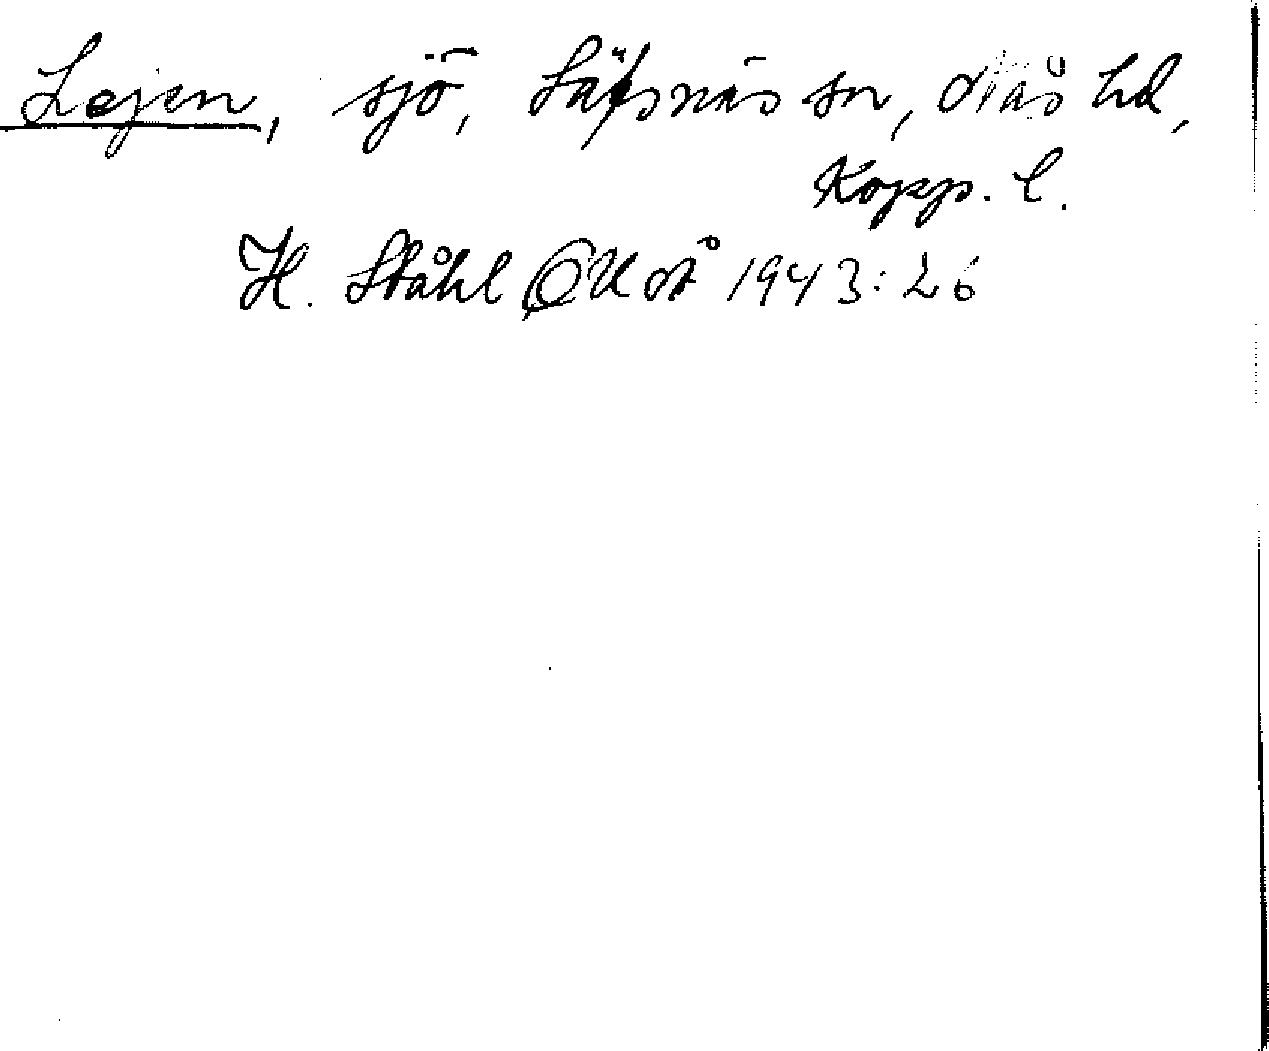 Lejen, sjö, Säfsnäs sn, Nås hd,
Kopp. l.
H. Ståhl 1943:26